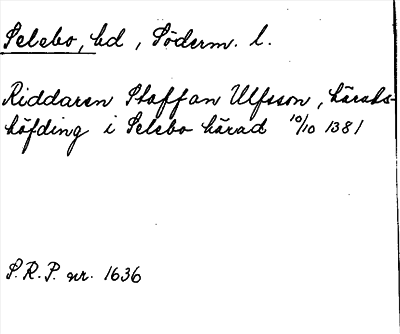 Selebo, hd, Söderm. l.
Riddaren Staffan Ulfsson, härads-
höfding i Selebo härad 10/10 1381
S.R.P. nr. 1636